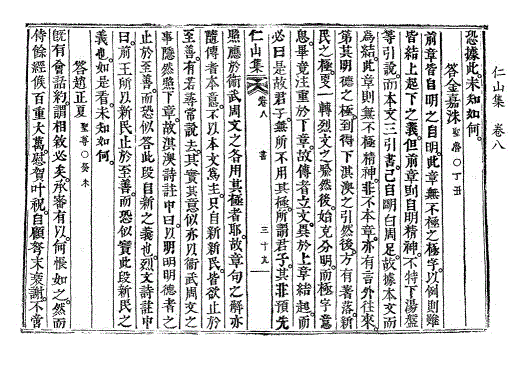 仁山集 卷八
恐據此。未知如何。
答金嘉洙 丁丑
前章皆自明之自明。此章無不極之極字。以例則雖
皆結上起下之義。但前章則自明精神。不特下湯盤
等引說。而本文三引書。己自明白周足。故據本文而
為結此章則無不極精神。非不本章。亦有言外往來。
第其明德之極。到得下淇澳之引然後。方有著落。新
民之極。要一轉烈文之然後始克分明。而極字意
思畢竟注重於下章。故傳者立文。異於上章結起。而
必曰是故君子無所不用其極。所謂君子。其非預先
仁山集 卷八 書 三十九
照應於衛武周文之各用其極者耶。故章句之解。亦
隨傳者本意。不以本文為主。只自新新民。皆欲止於
至善。有若尋常說去。其實其意。似亦以衛武周文之
事隱然照下章。故淇澳詩註中曰。以明明明德者之
止於至善。而恐似答此段自新之義也。烈文詩註中
曰。前王所以新民止於至善。而恐似實此段新民之
義也。如是看未知如何。
答趙正夏 癸未
旣有會話約。謂相敘必矣。承審有以。何悵如之。然而
侍餘經候百重大萬。慰賀叶祝。自顧駑末衰謝。不啻